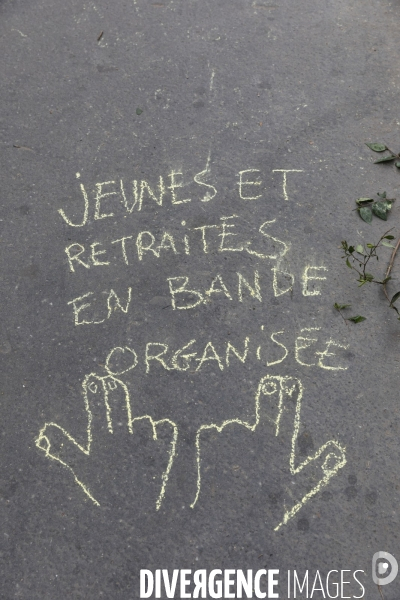 JEUNES ET
RETRAITÉS
EN BANDE
ORGANISÉE
DIVERGENCE IMAGES